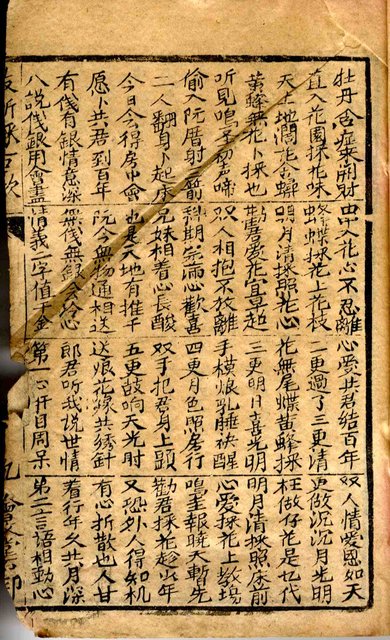 牡丹含蕊來開財 虫入花心不忍離 心愛共君結百年 双人情愛恩如天
直入花園採花味 蝴蝶採花上花枝 二更過了三更清 更做沉沉月光明
天上地濶花金蟬 明月清採照花心 花無尾蝶黃蜂採 枉做仔花是乜代
黃蜂無花卜採也 勸君愛花宜早起 三更明月喜光明 明月清採照床前
听見鳴初声啼 双人相抱不放離 手模娘乳睡袂醒 心愛採花上塲
偷入阮厝射一箭 科期完滿心歡喜 四更月色帶房行 鳴圭報曉天暫先
二人翻身卜起床 兄妹相看心長酸 双手抱君身上頭 勸君採花趁少年
今日今得房中會 也是天地有推千 五更鼓响天光時 又恐外人得知机
愿卜共君到百年 阮今無物通相送 送娘花線共綉針 有心折散也人甘
有伐有銀情意深 無伐無銀会捨心 郎君听我說世情 看行年久共月深
八說伐銀用會盡 情我二字值千金 第一心开目周呆 第二言語相動心